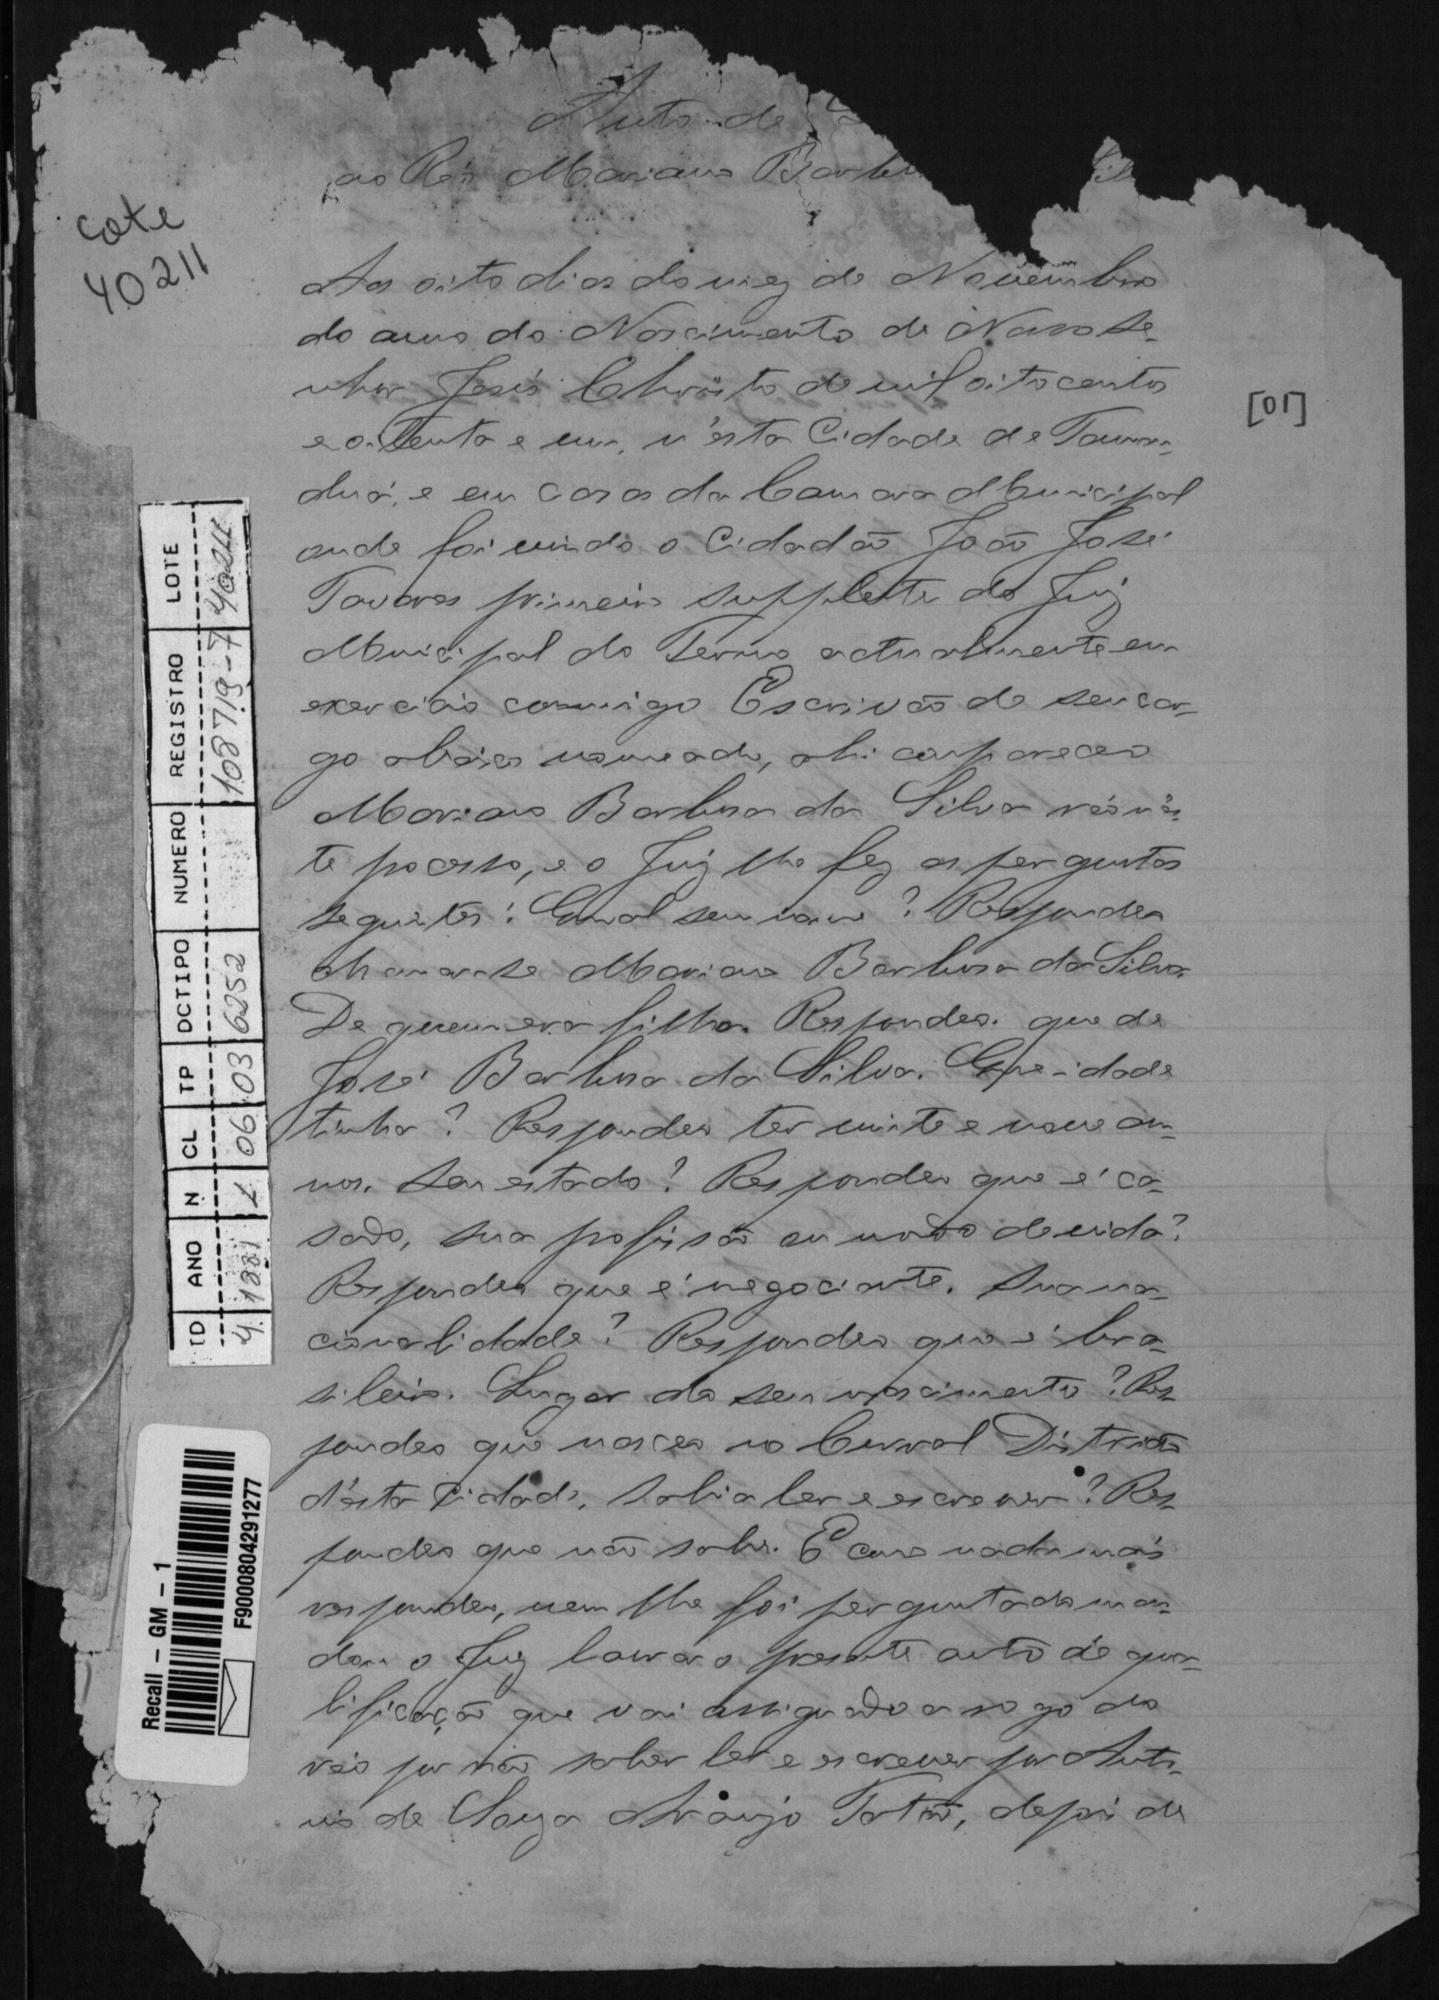 Auto de
ao Réo Mariano Barbo
cote
40211
Aos oito dias do mez de Novembro
do anno do Nascimento de Nosso Se-
nhor Jesús Christo de mil oitocentos
e oitenta e um, n'ésta Cidade de Taman-
duá, e em casa da Camara Municipal
onde foi vindo o Cidadão João José
Tavares primeiro supplente do Juiz
Municipal do Termo actualmente em
exercicio commigo Escrivão de seu car-
go abaixo nomeado, ahi compareceo
Mariano Barbosa da Silva réo nés-
te pocesso, e o Juiz lhe fez as perguntas
seguintes: Qual seu nome? Respondeo
chamar-se Mariano Barbosa da Silva.
De quem era filho. Respondeo. que de
José Barbosa da Silva. Que idade
tinha? Respondeo ter vinte e nove an-
nos. Seu estado? Respondeo que é ca-
sado, sua profissão ou modo de vida?
Respondeo que é negociante. Sua na-
cionalidade? Respondeo que é bra-
sileiro. Lugar do seu nascimento? Res-
pondeo que nasceo no Curral Districto
d'ésta Cidade. Sabia ler e escrever? Res-
pondeo que não sabe. E como nada mais
respondeo, nem lhe foi perguntado man-
dou o Juiz lavrar o presente auto de qua-
lificação que vai assignado a rogo do
réo por não saber ler e escrever por Anto-
nio de Souza Araujo Tostão, depois de
[01]
TD ANO N CL TP DCTIPO NUMERO REGISTRO LOTE
4 1881 1 06 03 6252 108719-7 40211
Recall – GM – 1
F9000804291277